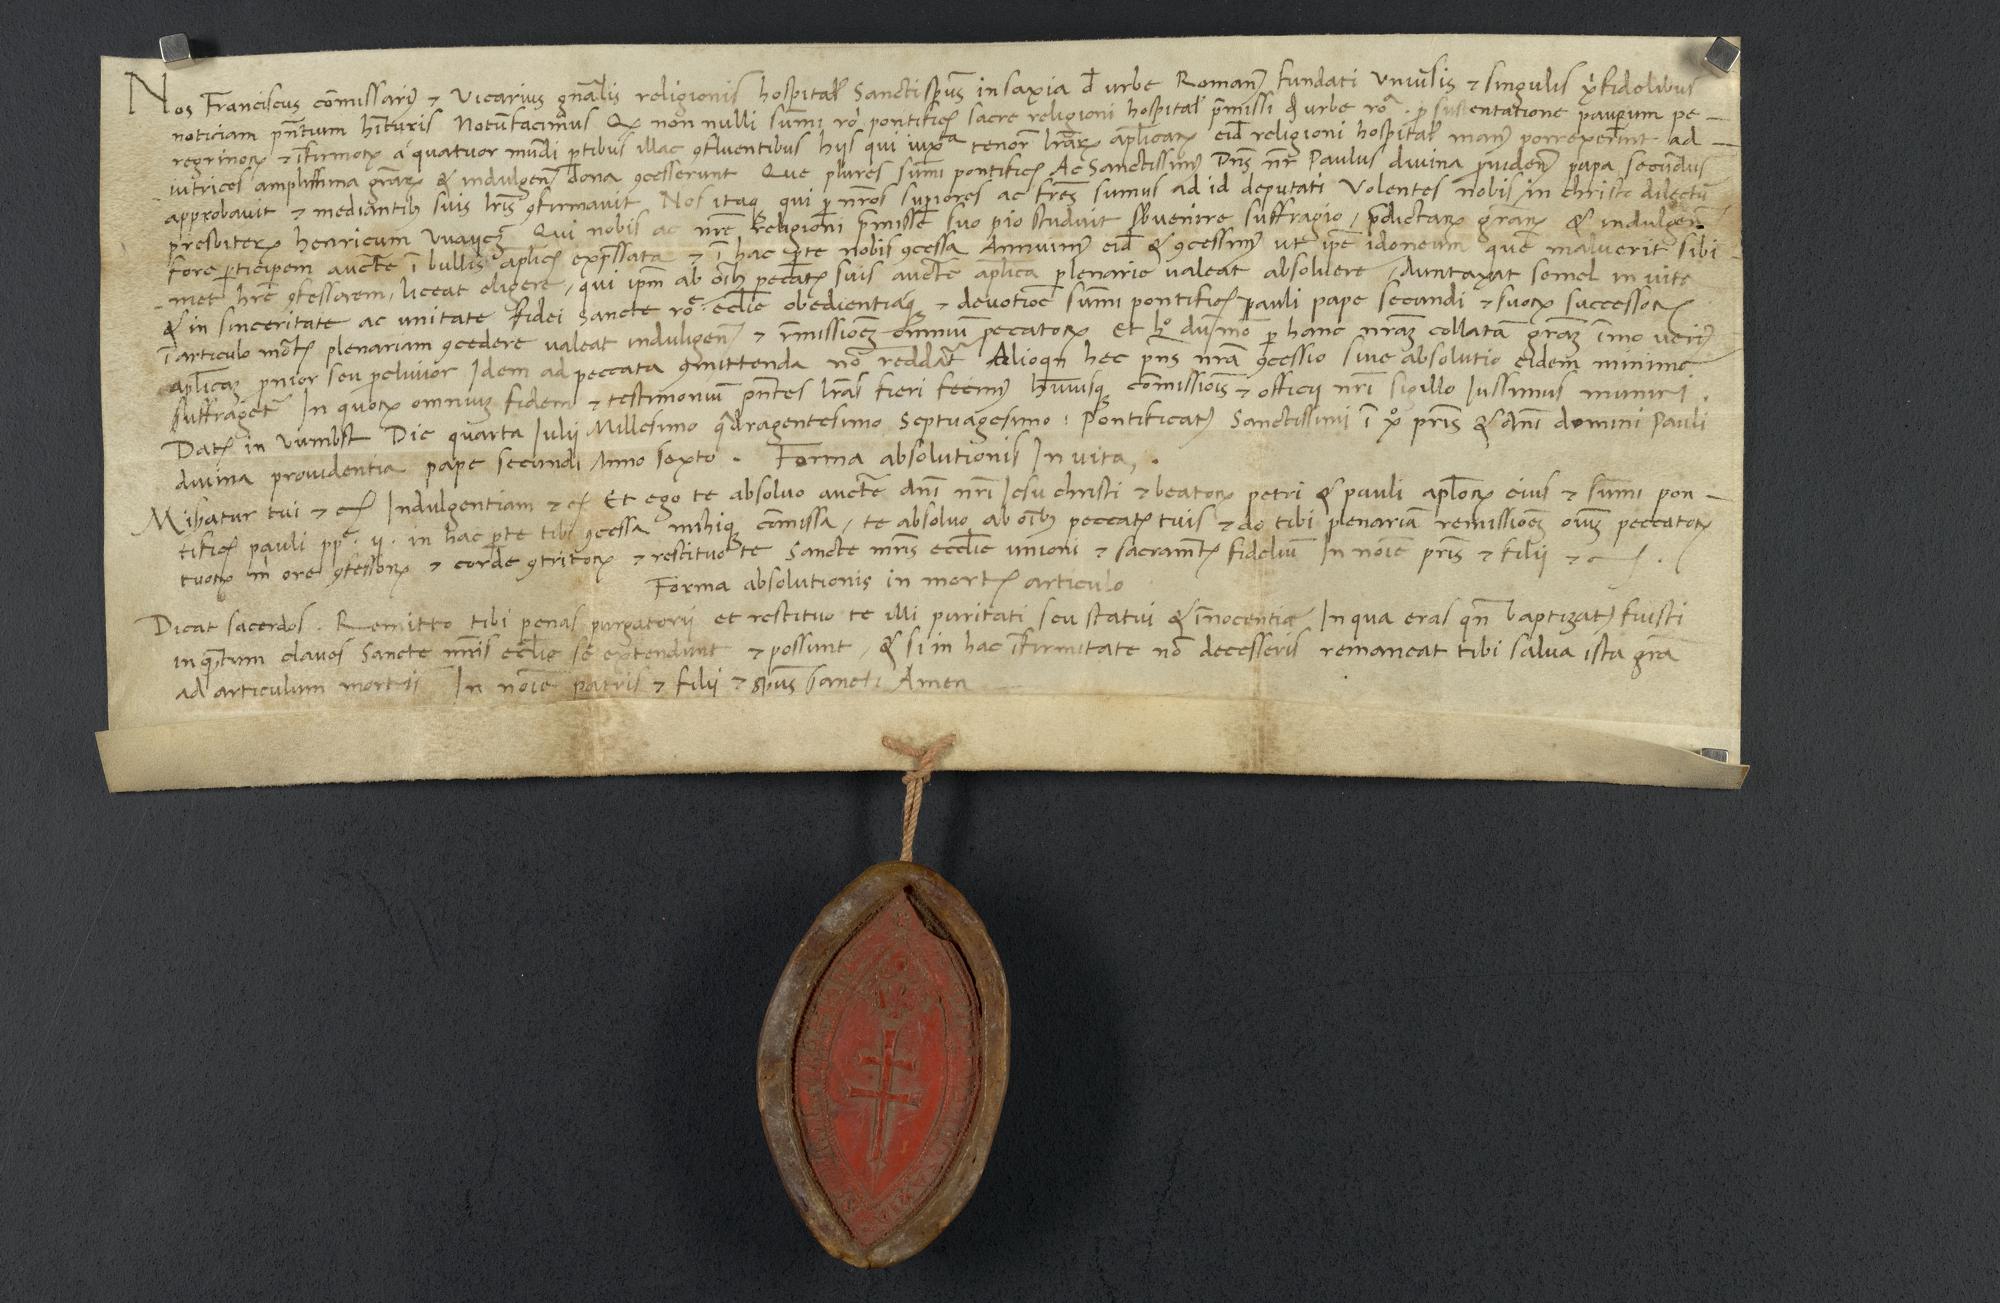 Nos Franciscus co̅missariꝰ ⁊ Vicarius gn̅alis religionis hospital̕ Sanctisp̅us in saxia d̅ urbe Romanꝰ fundati Univ̕sis ⁊ singulis xp̅ifidelibus
noticiam pn̅tium h̅ituris Notu̅facimus Qꝫ non nulli su̅mi ro̅ pontificꝭ sacre religioni hospital̕ p̅missi d̅ urbe ro̅ . ꝓ sustentatione paupum pe-
regrinoꝝ ⁊ i̅firmoꝝ a quatuor mu̅di ꝑtibus illac ꝯfluentibus hijs qui iuxta tenor̅ lr̅aꝝ ap̅licaꝝ eid̅ religioni hospital̕ manꝰ porrexeri̅t ad-
iutrices amplissima gr̅aꝝ & indulgen̅ dona ꝯcesserunt Que plures su̅mi pontificꝭ Ac Sanctissimꝰ Dn̅s nr̅ Paulus divina ꝓviden̅ papa secu̅dus
approbavit ⁊ mediantibꝫ suis lr̅is ꝯfirmavit Nos itaqꝫ qui ꝑ nr̅os supiores ac fr̅es sumus ad id deputati Volentes nobis in christo dilectu̅
presbiterꝝ henricum Vvaycꝫ Qui nobis ac nr̅e Religioni p̅misse suo pio studuit sb̅venire suffragio / p̅dictaꝝ gr̅aꝝ & indulgen̅
fore ꝑticipem auct̅e i̅ bullis ap̅licꝭ exp̅ssata ⁊ i̅ hac ꝑte nobis ꝯcessa Annuimꝰ eid̅ & ꝯcessimꝰ ut ip̅e idoneum que̅ maluerit sibi-
met hr̅e ꝯfessorem / liceat eligere / qui ip̅m ab o̅ibꝫ peccatꝭ suis auct̅e aplica̅ plenarie valeat absoluere / duntaxat semel in vite
& in sinceritate ac unitate fidei sancte ro̅e eccl̅ie obedientiaqꝫ ⁊ devotioe̅ su̅mi pontificꝭ pauli pape secundi ⁊ suoꝝ successoꝝ
i̅ articulo mo̅tꝭ plenariam ꝯcedere valeat indulgen̅ ⁊ r̅missioeꝫ omniu̅ peccatoꝝ Et hͦ du̅mo̅ ꝑ hanc nr̅aꝫ collata̅ gr̅aꝫ i̅mo veriꝰ
ap̅licaꝫ pnior seu ꝓclivior Idem ad peccata ꝯmittenda no̅ reddat̅ Alioqn̅ hec pn̅s nr̅a ꝯcessio sive absolutio eidem minime
suffraget̅ In quoꝝ omniuꝫ fidem ⁊ testimoniu̅ pn̅tes lr̅as fieri fecimꝰ hui̅usqꝫ co̅missiois̅ ⁊ officij nr̅i sigillo Iussimus muniri .
Datꝭ in Die quarta Iulij Millesimo q̅dragentesimo Septuagesimo : Pontificatꝰ Sanctissimi i̅ xo̅ pr̅is & dn̅i domini Pauli
divina providentia pape secundi Anno sexto . Forma absolutionis In vita, .
Misereatur tui ⁊ cꝭ Indulgentiam ⁊ cꝭ Et ego te absolvo auct̅e dn̅i nr̅i Iesu christi ⁊ beatoꝝ petri & pauli apl̅oꝝ eius ⁊ su̅mi pon-
tificꝭ pauli pp̅e . ij . in hac ꝑte tibi ꝯcessa mihiqꝫ co̅missa / te absolvo ab o̅ibꝫ peccatꝭ tuis ⁊ do tibi plenaria̅ remissioeꝫ oi̅uꝫ peccatoꝝ
tuoꝝ in ore ꝯfessoꝝ ⁊ corde ꝯtritoꝝ ⁊ restituo te Sancte mr̅is eccl̅ie unioni ⁊ sacram̅tꝭ fideliu̅ In no̅ie pr̅is ⁊ filij ⁊ cꝭ .
Forma absolutionis in mortꝭ articulo
Dicat sacerdos . Remitto tibi penas purgatorij et restituo te illi puritati seu statui & i̅nocentie In qua eras qn̅ baptizatꝰ fuisti
in qꝫtum claves Sancte mr̅is eccl̅ie se extendunt ⁊ possunt / & si in hac i̅firmitate no̅ decesseris remaneat tibi salva ista gr̅a
ad articulum mortis In no̅ie patris ⁊ filij ⁊ sp̅us sancti Amen